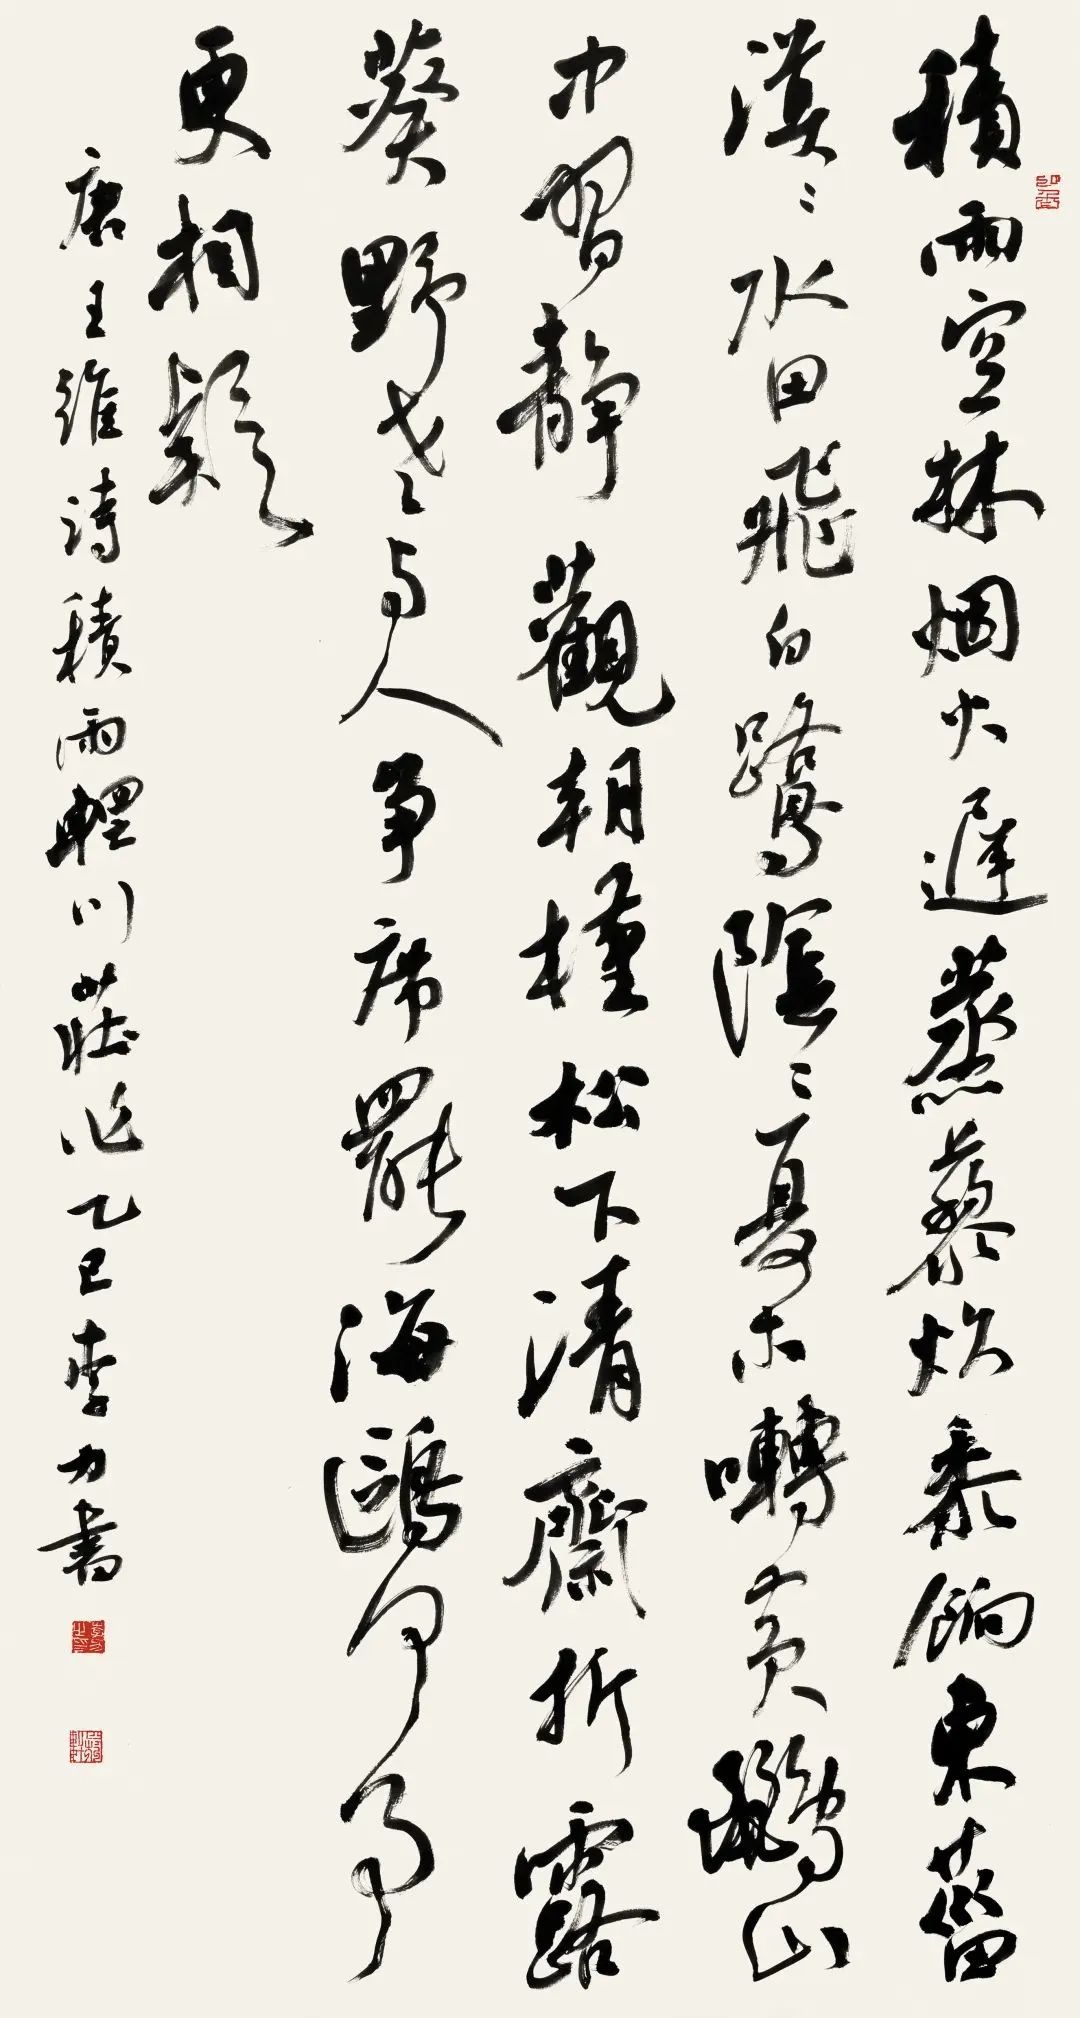 積雨空林烟火遲蒸藜炊黍餉東菑
漠〻水田飛白鷺陰〻夏木囀黄鸝山
中習静觀朝槿松下清齋折露
葵野老〻與人争席罷海鷗何事
更相疑
唐王維詩積雨輞川莊作乙巳李力書